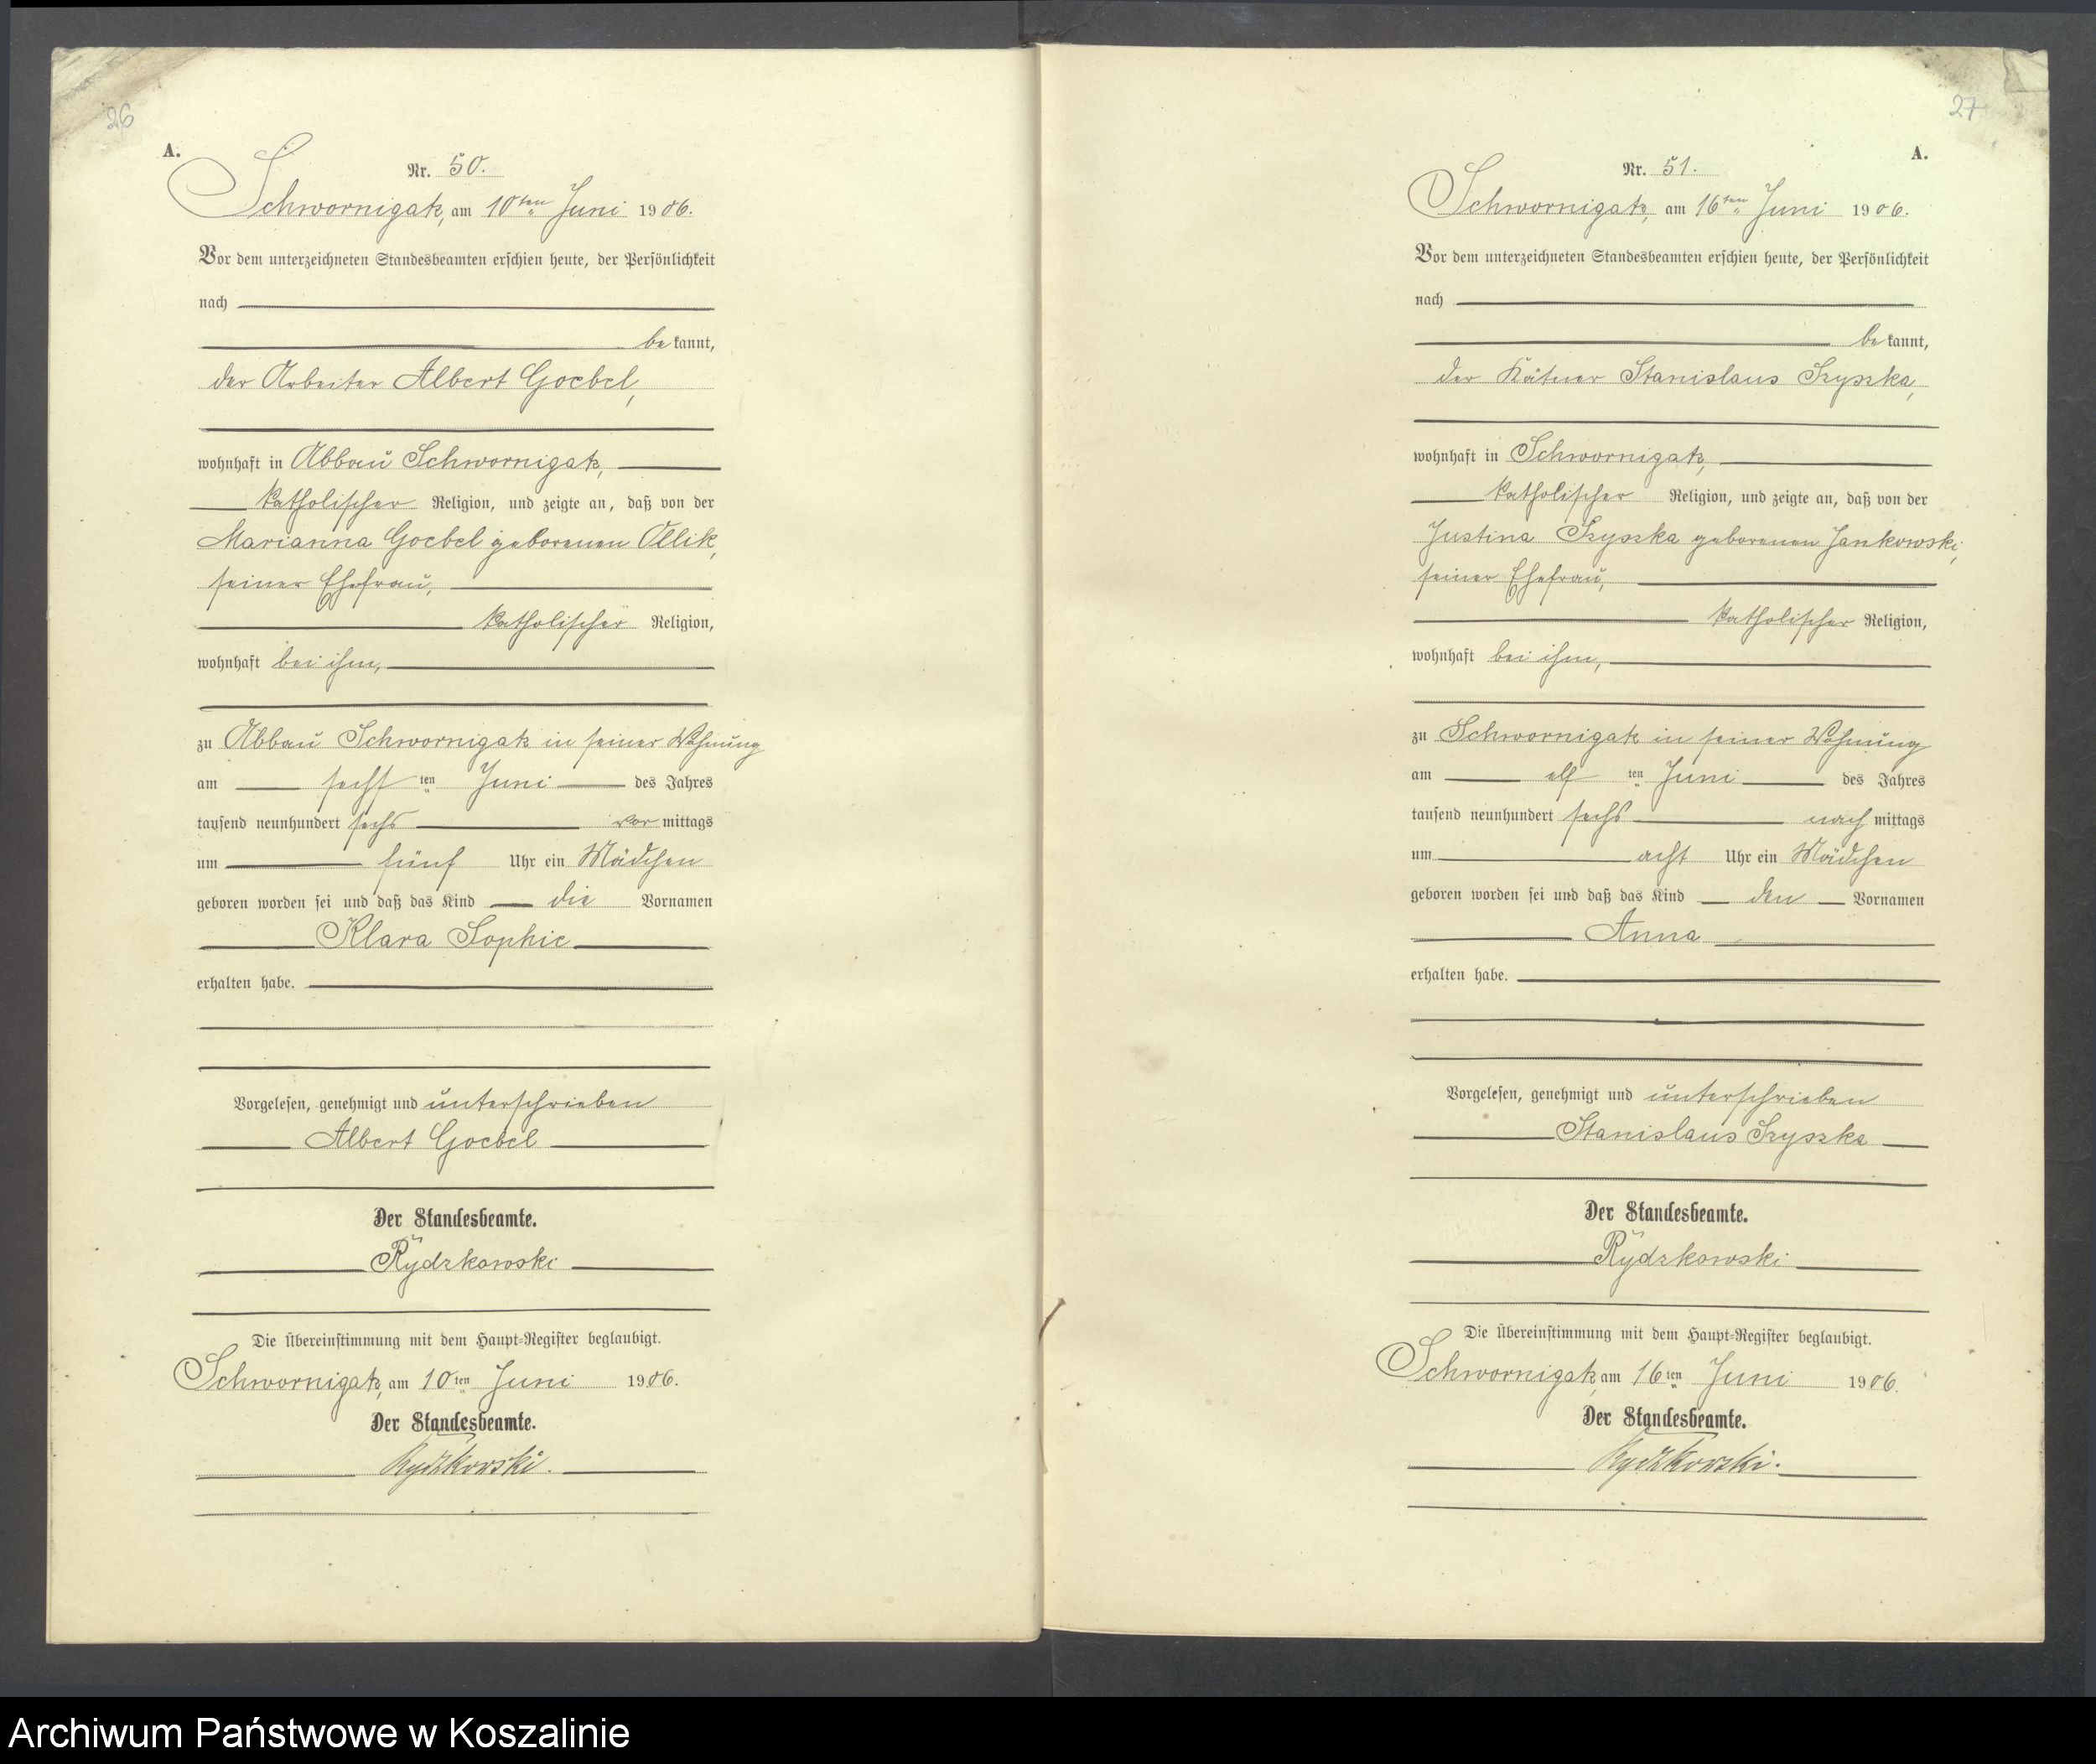 26
A.
Nr. 50.
Schwornigatz, am 10ten Juni 1906.
Vor dem unterzeichneten Standesbeamten erschien heute, der Persönlichkeit
nach
bekannt,
der Arbeiter Albert Goebel,
wohnhaft in Abbau Schwornigatz,
katholischer Religion, und zeigte an, daß von der
Marianna Goebel geborenen Ollik,
seiner Ehefrau,
katholischer Religion,
wohnhaft bei ihm,
zu Abbau Schwornigatz in seiner Wohnung
am sechsten Juni des Jahres
tausend neunhundert sechs vormittags
um fünf Uhr ein Mädchen
geboren worden sei und daß das Kind die Vornamen
Klara Sophie
erhalten habe.
Vorgelesen, genehmigt und unterschrieben
Albert Goebel
Der Standesbeamte.
Rydzkowski
Die Übereinstimmung mit dem Haupt-Register beglaubigt.
Schwornigatz, am 10ten Juni 1906.
Der Standesbeamte.
Rydzkowski.
27
A.
Nr. 51.
Schwornigatz, am 16ten Juni 1906.
Vor dem unterzeichneten Standesbeamten erschien heute, der Persönlichkeit
nach
bekannt,
der Kätner Stanislaus Szyszka,
wohnhaft in Schwornigatz,
katholischer Religion, und zeigte an, daß von der
Justina Szyszka geborenen Jankowski,
seiner Ehefrau,
katholischer Religion,
wohnhaft bei ihm,
zu Schwornigatz in seiner Wohnung
am elften Juni des Jahres
tausend neunhundert sechs nachmittags
um acht Uhr ein Mädchen
geboren worden sei und daß das Kind den Vornamen
Anna
erhalten habe.
Vorgelesen, genehmigt und unterschrieben
Stanislaus Szyszka
Der Standesbeamte.
Rydzkowski
Die Übereinstimmung mit dem Haupt-Register beglaubigt.
Schwornigatz, am 16ten Juni 1906.
Der Standesbeamte.
Rydzkowski.
Archiwum Państwowe w Koszalinie